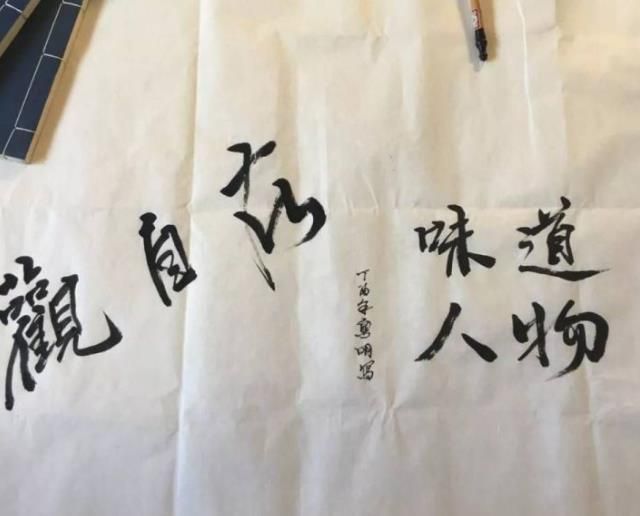 觀自在
丁酉年明写
味道
人物